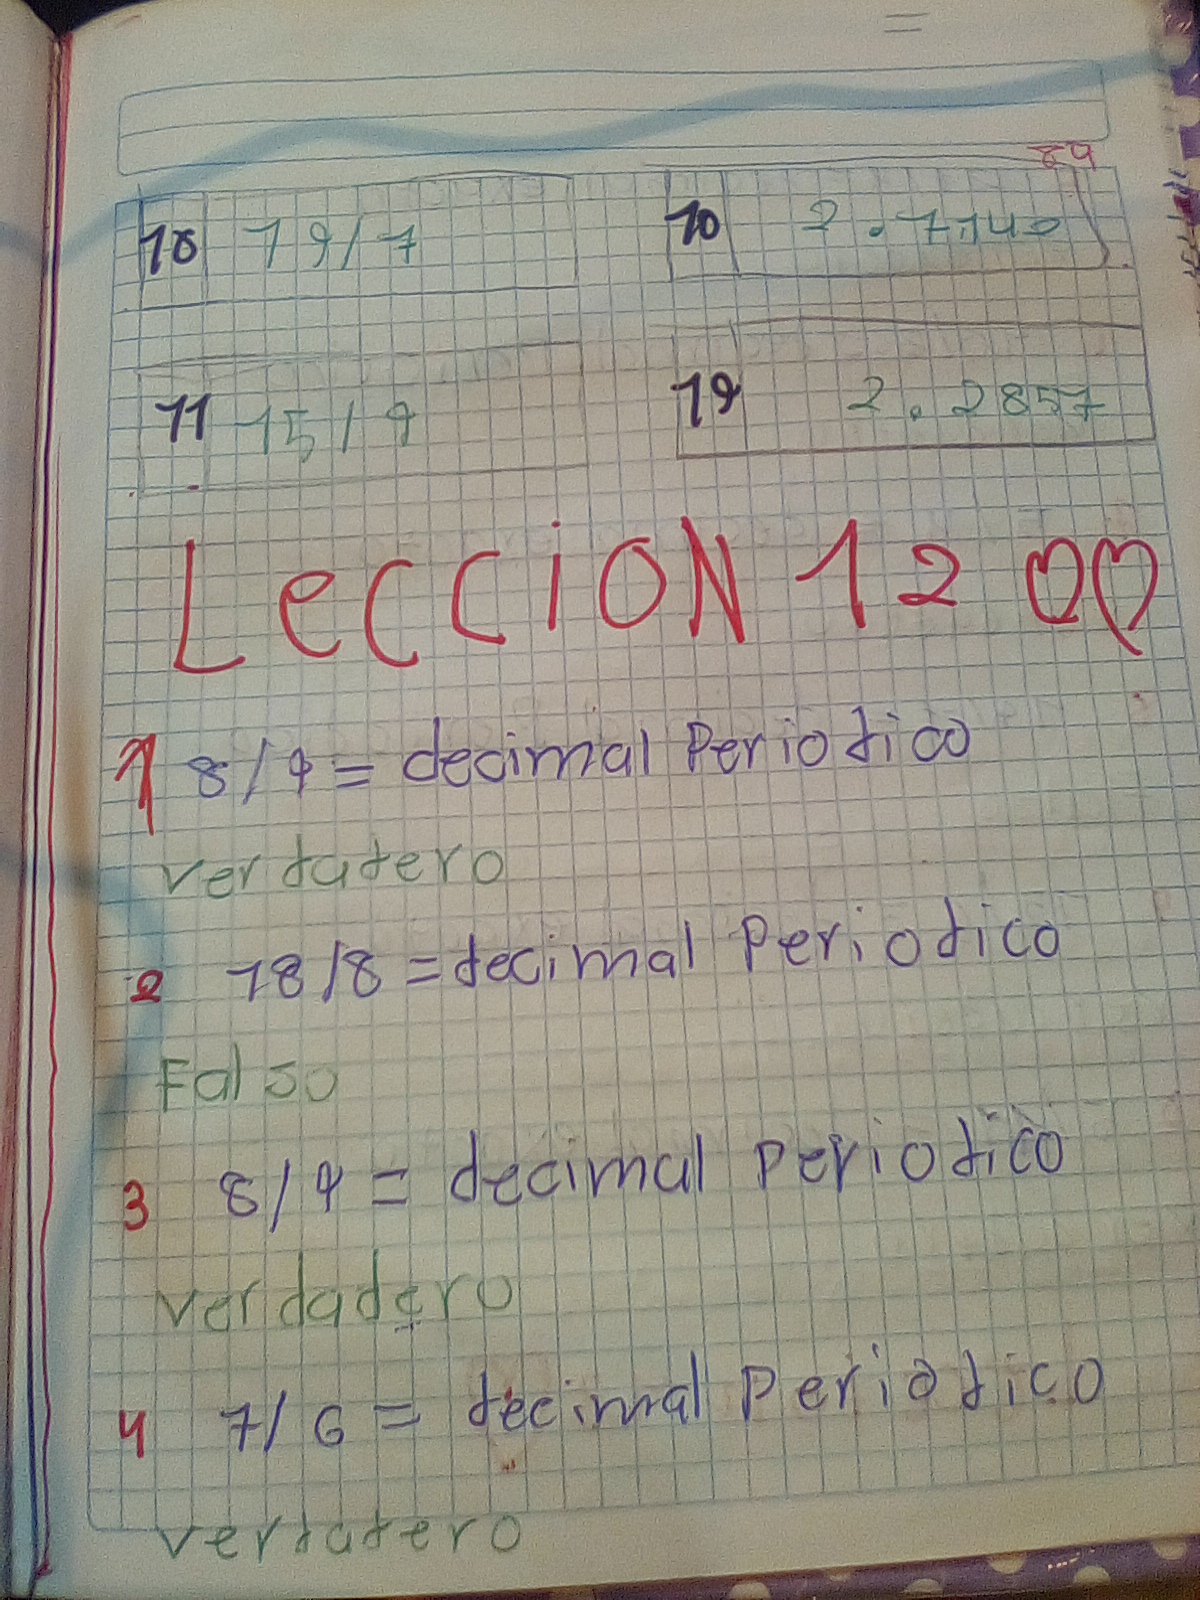 89
10 19/7
10 2.7140
11 15/9
19 2.2857
LeCCiON 12
1 8/9 = decimal Periodico
verdadero
2 18/8 = decimal Periodico
Falso
3 8/9 = decimal Periodico
verdadero
4 7/6 = decimal Periodico
verdadero